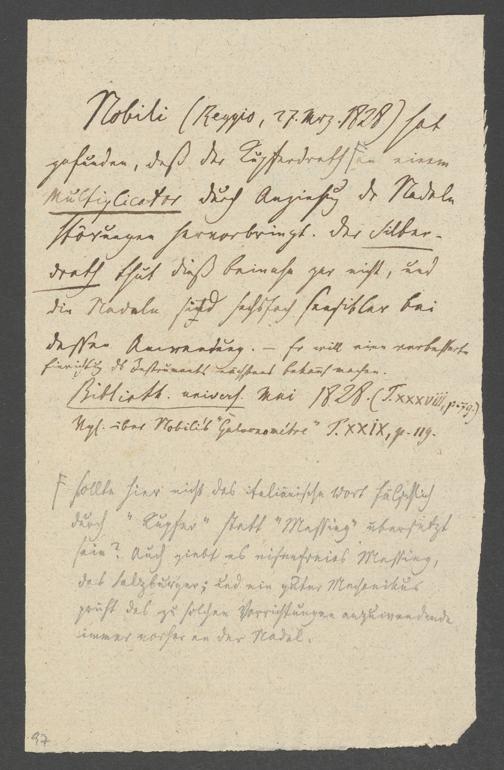 Nobili (Reggio, 27. Mrz. 1828) hat
gefunden, daß der Kupferdrath F an einem
Multiplicator durch Anziehung der Nadeln
Störungen hervorbringt. Der Silber-
drath thut dieß beinahe gar nicht, und
die Nadeln sind sensibler bei
dessen Anwendung. — Er will eine verbesserte
Einrichtung des Instruments nächstens bekannt machen.
Biblioth. univers. Mai 1828. (T. XXXVIII, p. 79.)
Vgl. über Nobili's "Galvanomètre" T. XXIX, p. 119.
F sollte hier nicht das italiänische Wort fälschlich
durch "Kupfer" statt "Messing" übersetzt
sein? Auch giebt es eisenfreies Messing,
das Salzburger; und ein guter Mechanikus
prüft das zu solchen Vorrichtungen anzuwendende
immer vorher an der Nadel.
97